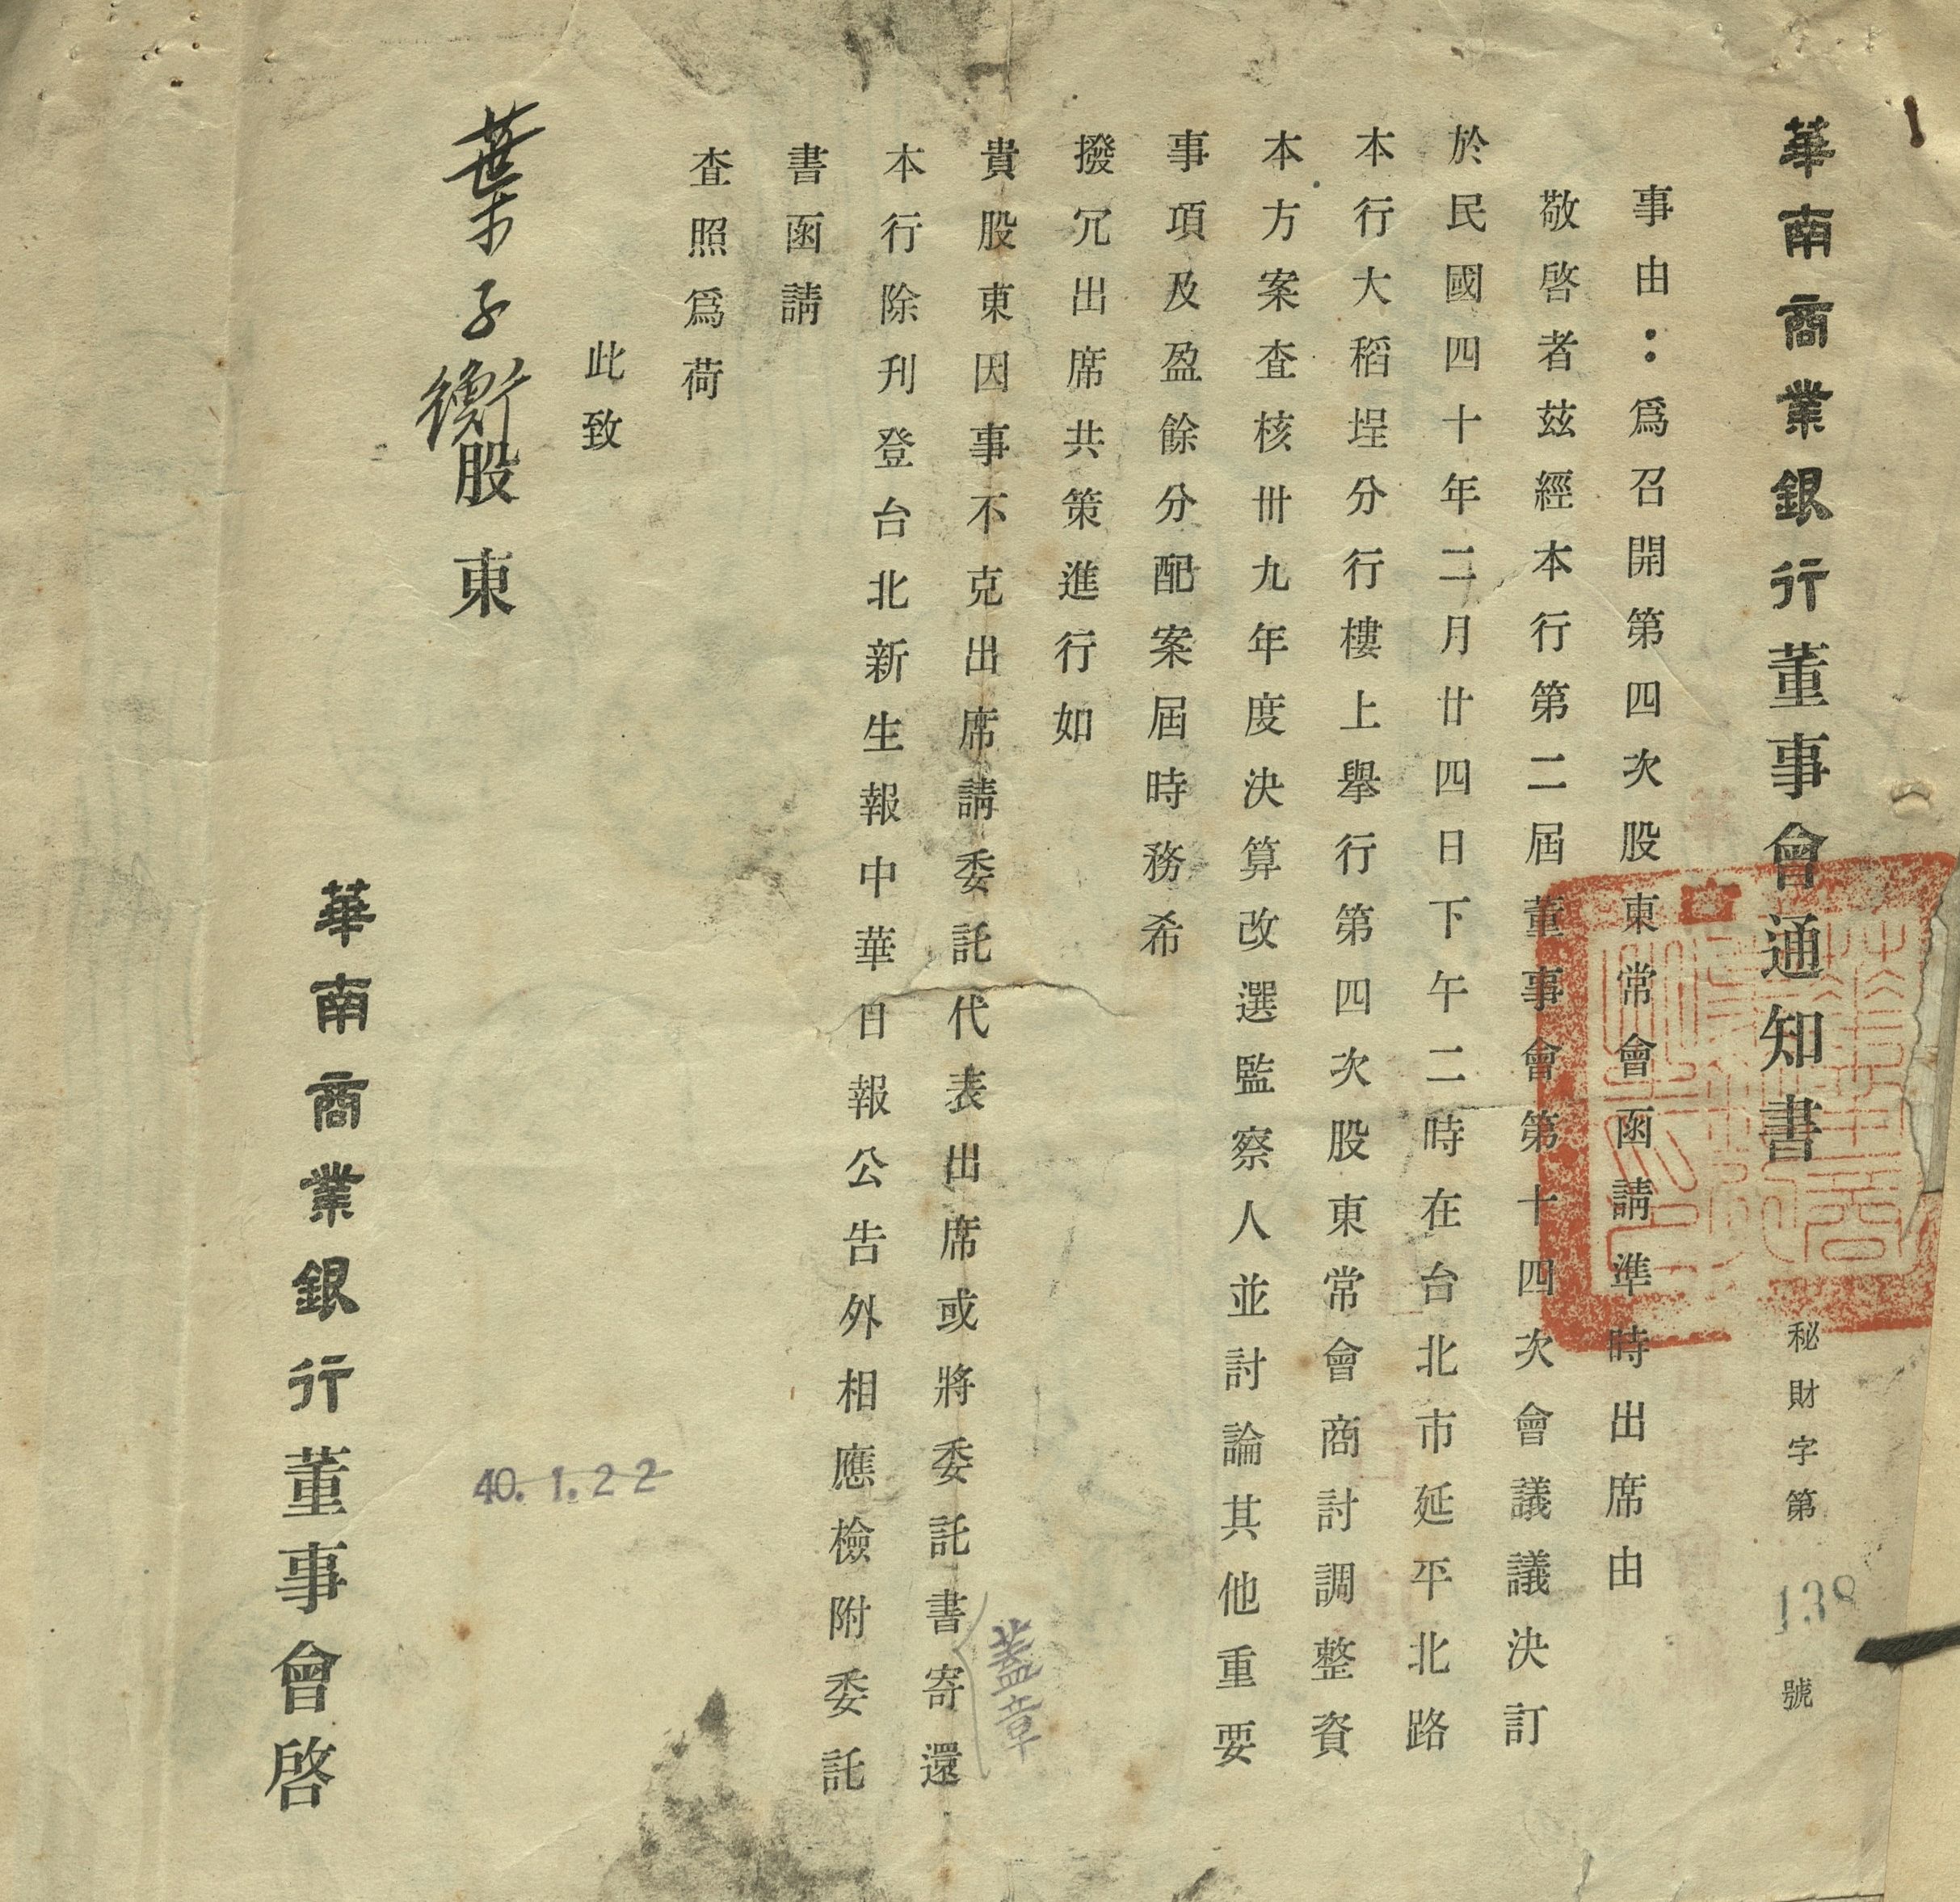 華南商業銀行董事會通知書
秘財字第138號
事由：爲召開第四次股東常會函請準時出席由
敬啓者玆經本行第二屆董事會第十四次會議議決訂
於民國四十年二月廿四日下午二時在台北市延平北路
本行大稻埕分行樓上舉行第四次股東常會商討調整資
本方案查核卅九年度決算改選監察人並討論其他重要
事項及盈餘分配案屆時務希
撥冗出席共策進行如
貴股東因事不克出席請委託代表出席或將委託書寄還
蓋章
本行除刋登台北新生報中華日報公告外相應檢附委託
書函請
查照爲荷
此致
葉子衡股東
40.1.22
華南商業銀行董事會啓